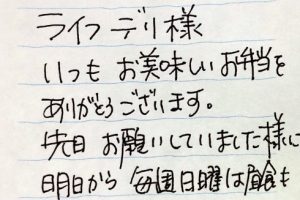 ライフデリ様
いつもお美味しいお弁当を
ありがとうございます。
先日お願いしていました様に
明日から毎週日曜は昼食も